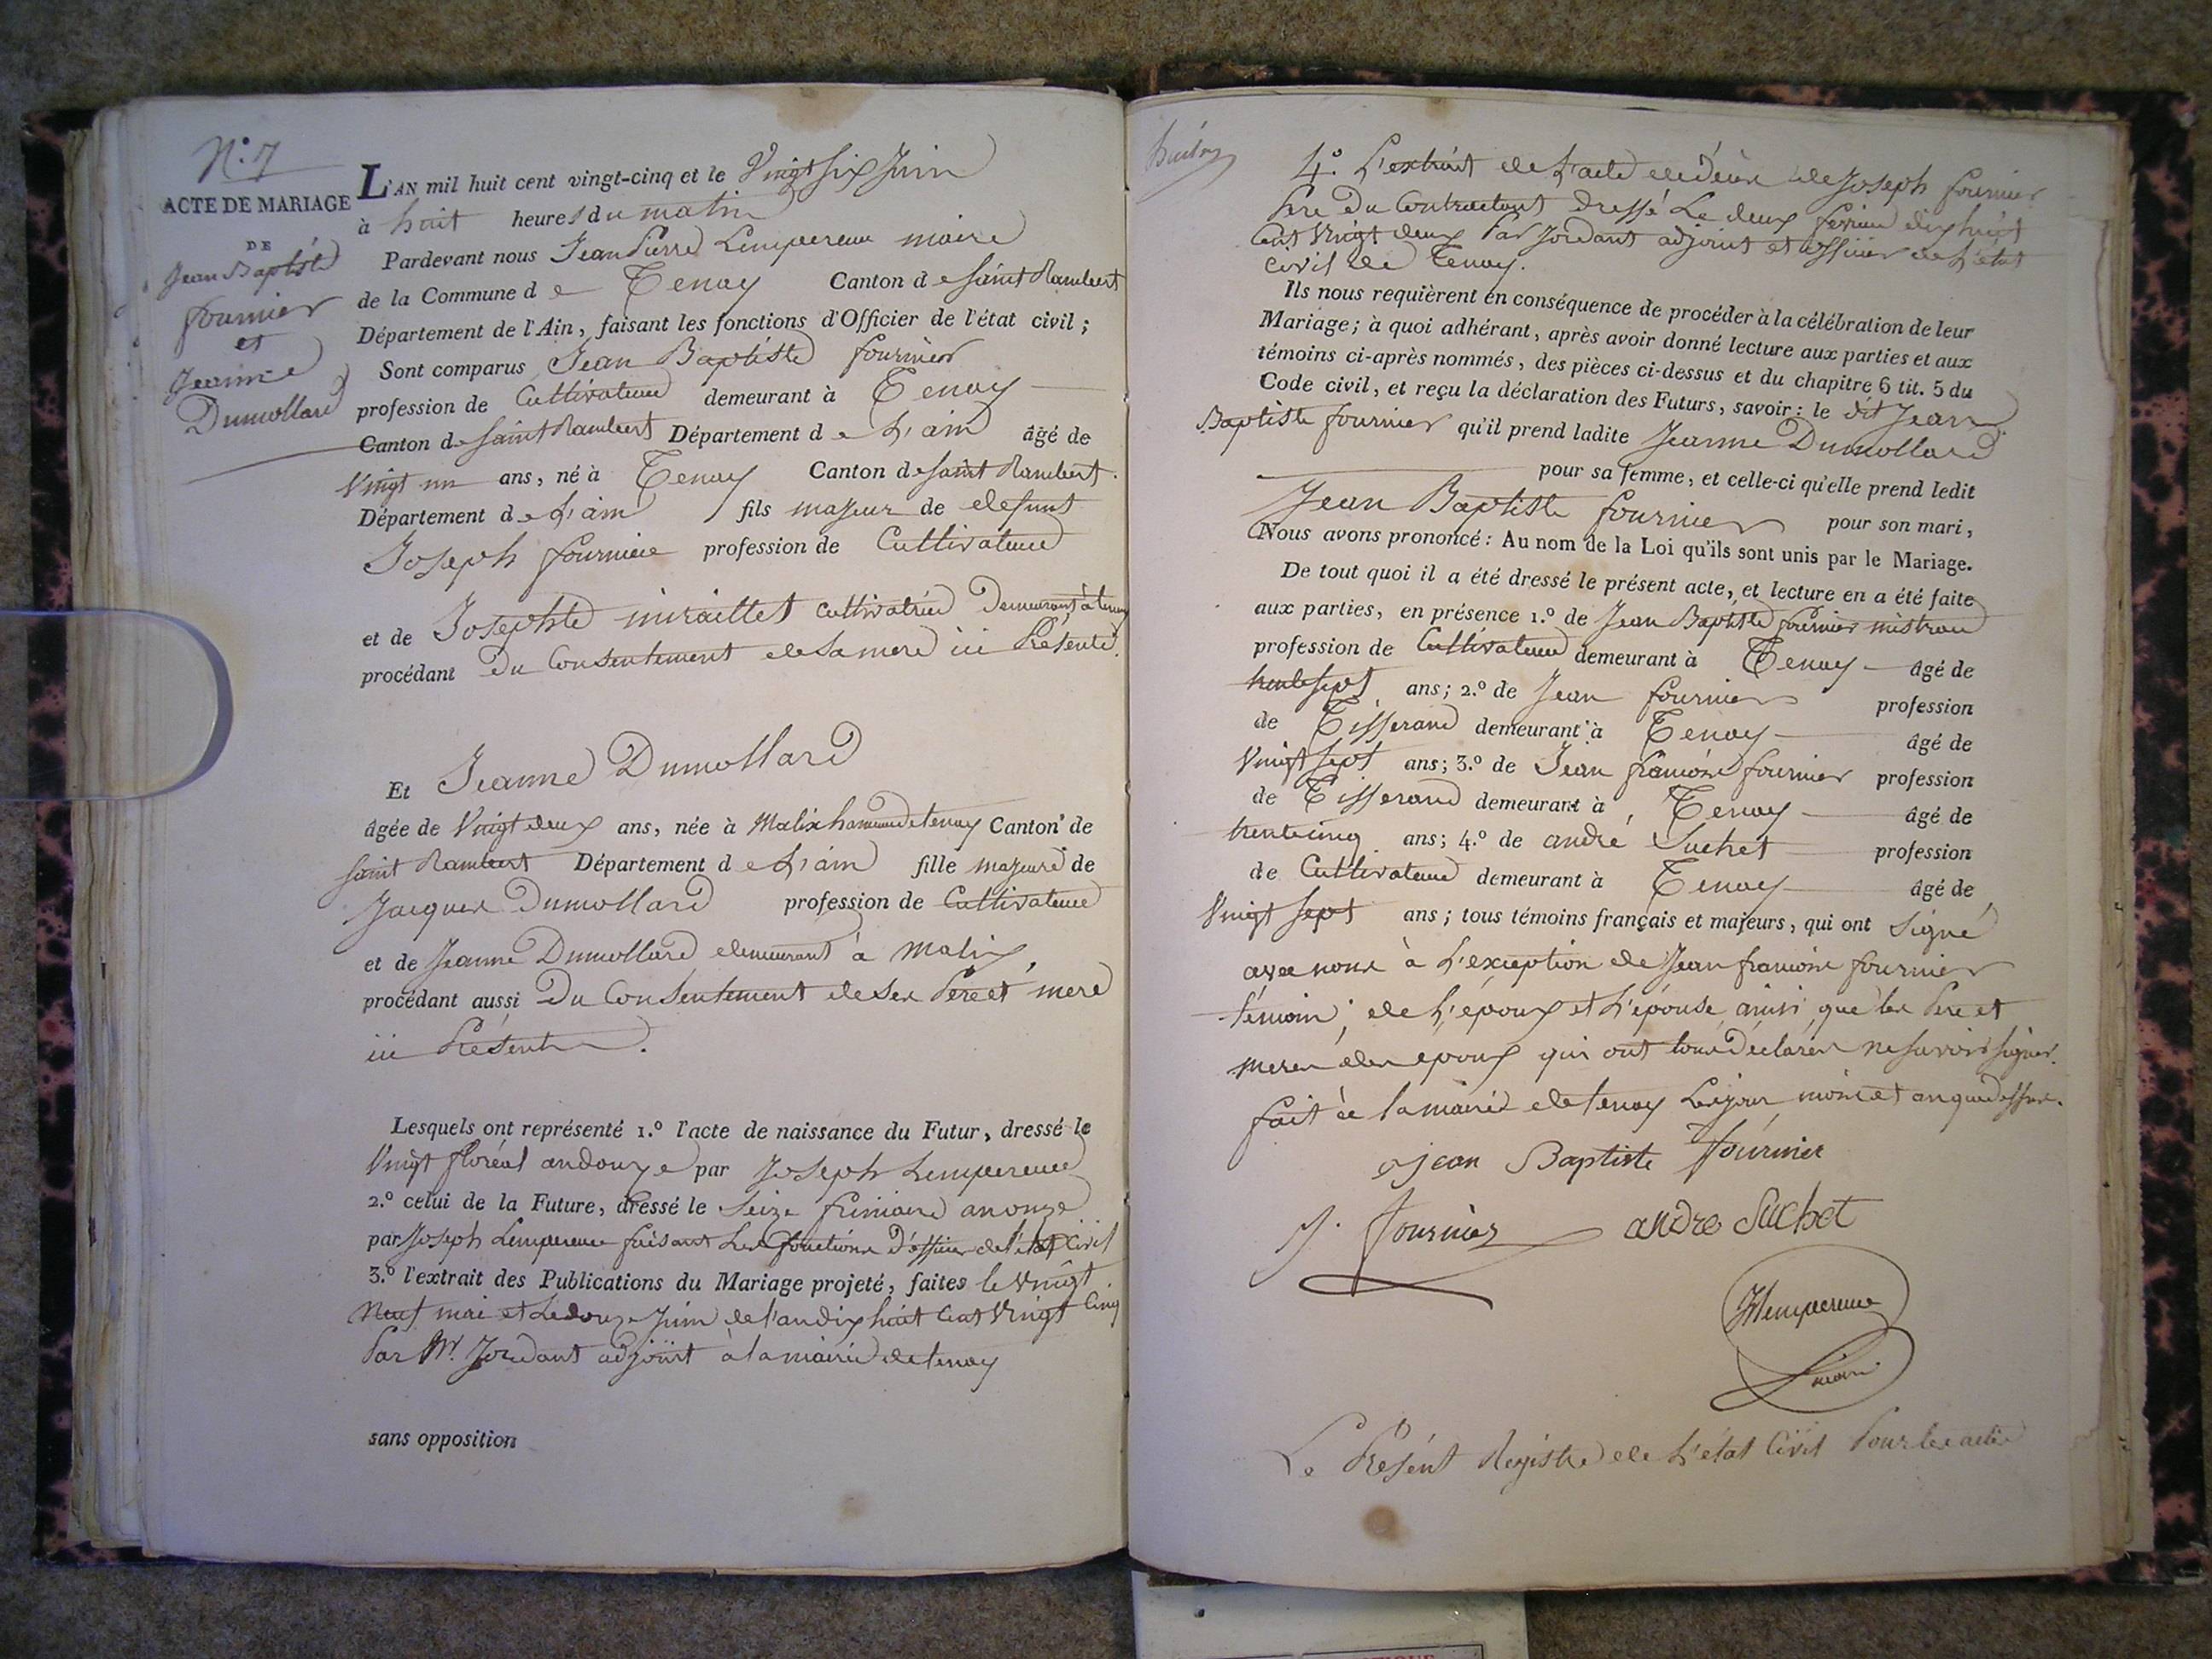 N.° 7
ACTE DE MARIAGE
DE
Jean Baptiste
fournier
et
Jeanne
Dumollard
L'AN mil huit cent vingt-cinq et le Vingt six Juin
à huit heures du matin
Pardevant nous Jean Pierre Lempereur maire
de la Commune de Tenay Canton de Saint Rambert
Département de l'Ain, faisant les fonctions d'Officier de l'état civil;
Sont comparus Jean Baptiste fournier
profession de Cultivateur demeurant à Tenay
Canton de Saint Rambert Département de L'ain âgé de
Vingt un ans, né à Tenay Canton de Saint Rambert.
Département de L'ain fils majeur de defunt
Joseph fournier profession de Cultivateur
et de Josephte miraillet cultivatrice Demeurant à tenay
procédant Du Consentement de sa mere ici Présente.
Et Jeanne Dumollard
âgée de Vingt deux ans, née à Malix hameau de tenay Canton de
Saint Rambert Département de L'ain fille majeure de
Jacques Dumollard profession de Cultivateur
et de Jeanne Dumollard demeurant à Malix,
procédant aussi Du Consentement de ses Pere et mere
ici Présents.
Lesquels ont représenté 1.° l'acte de naissance du Futur, dressé le
Vingt floréal an douze par Joseph Lempereur
2.° celui de la Future, dressé le Seize frimaire an onze
par Joseph Lempereur faisant Les fonctions D'officier de l'état Civil
3.° l'extrait des Publications du Mariage projeté, faites le Vingt
Neuf mai et Le douze Juin de l'an dix huit Cent Vingt Cinq
Par Mr. Jordant adjoint à la mairie de tenay
sans opposition
4.° L'extrait de L'acte de décès de Joseph fournier
Pere Du Contractant dressé Le deux fevrier dix huit
Cent Vingt deux Par Jordant adjoint et officier de L'état
Civil de Tenay.
Ils nous requièrent en conséquence de procéder à la célébration de leur
Mariage; à quoi adhérant, après avoir donné lecture aux parties et aux
témoins ci-après nommés, des pièces ci-dessus et du chapitre 6 tit. 5 du
Code civil, et reçu la déclaration des Futurs, savoir: le dit Jean
Baptiste fournier qu'il prend ladite Jeanne Dumollard
pour sa femme, et celle-ci qu'elle prend ledit
Jean Baptiste fournier pour son mari,
Nous avons prononcé: Au nom de la Loi qu'ils sont unis par le Mariage.
De tout quoi il a été dressé le présent acte, et lecture en a été faite
aux parties, en présence 1.° de Jean Baptiste fournier mistrau
profession de Cultivateur demeurant à Tenay âgé de
trente sept ans; 2.° de Jean fournier profession
de Tisserand demeurant à Tenay âgé de
Vingt sept ans; 3.° de Jean françois fournier profession
de Tisserand demeurant à Tenay âgé de
trente cinq ans; 4.° de andré Suchet profession
de Cultivateur demeurant à Tenay âgé de
Vingt sept ans; tous témoins français et majeurs, qui ont Signé
avec nous à L'exception de Jean françois fournier
témoin, de L'époux et L'épouse ainsi que les Pere et
meres des epoux qui ont tous déclarés ne savoir signer.
fait à la mairie de tenay Les jour mois et an que dessus.
jean Baptiste fournier
J. fournier andré Suchet
Lempereur
maire
Le Présent Registre de L'état Civil Pour les actes